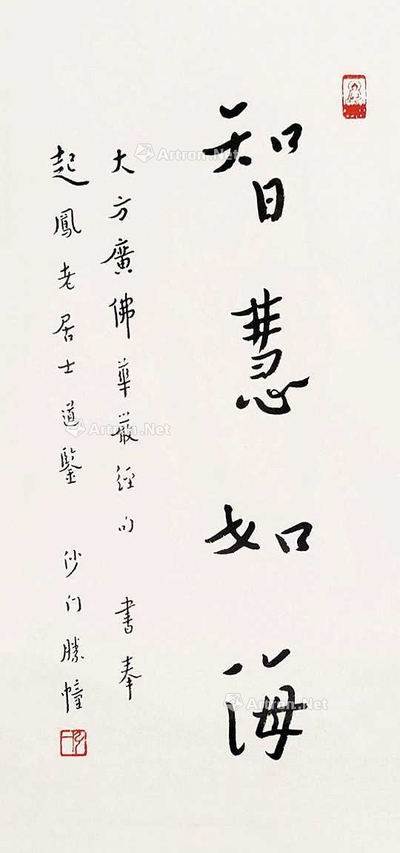 智慧如海
大方廣佛華嚴經句 書奉
起鳳老居士道鑒 沙门勝幢
Artron.Net
Artron.Net
Artron.Net
Artron.Net